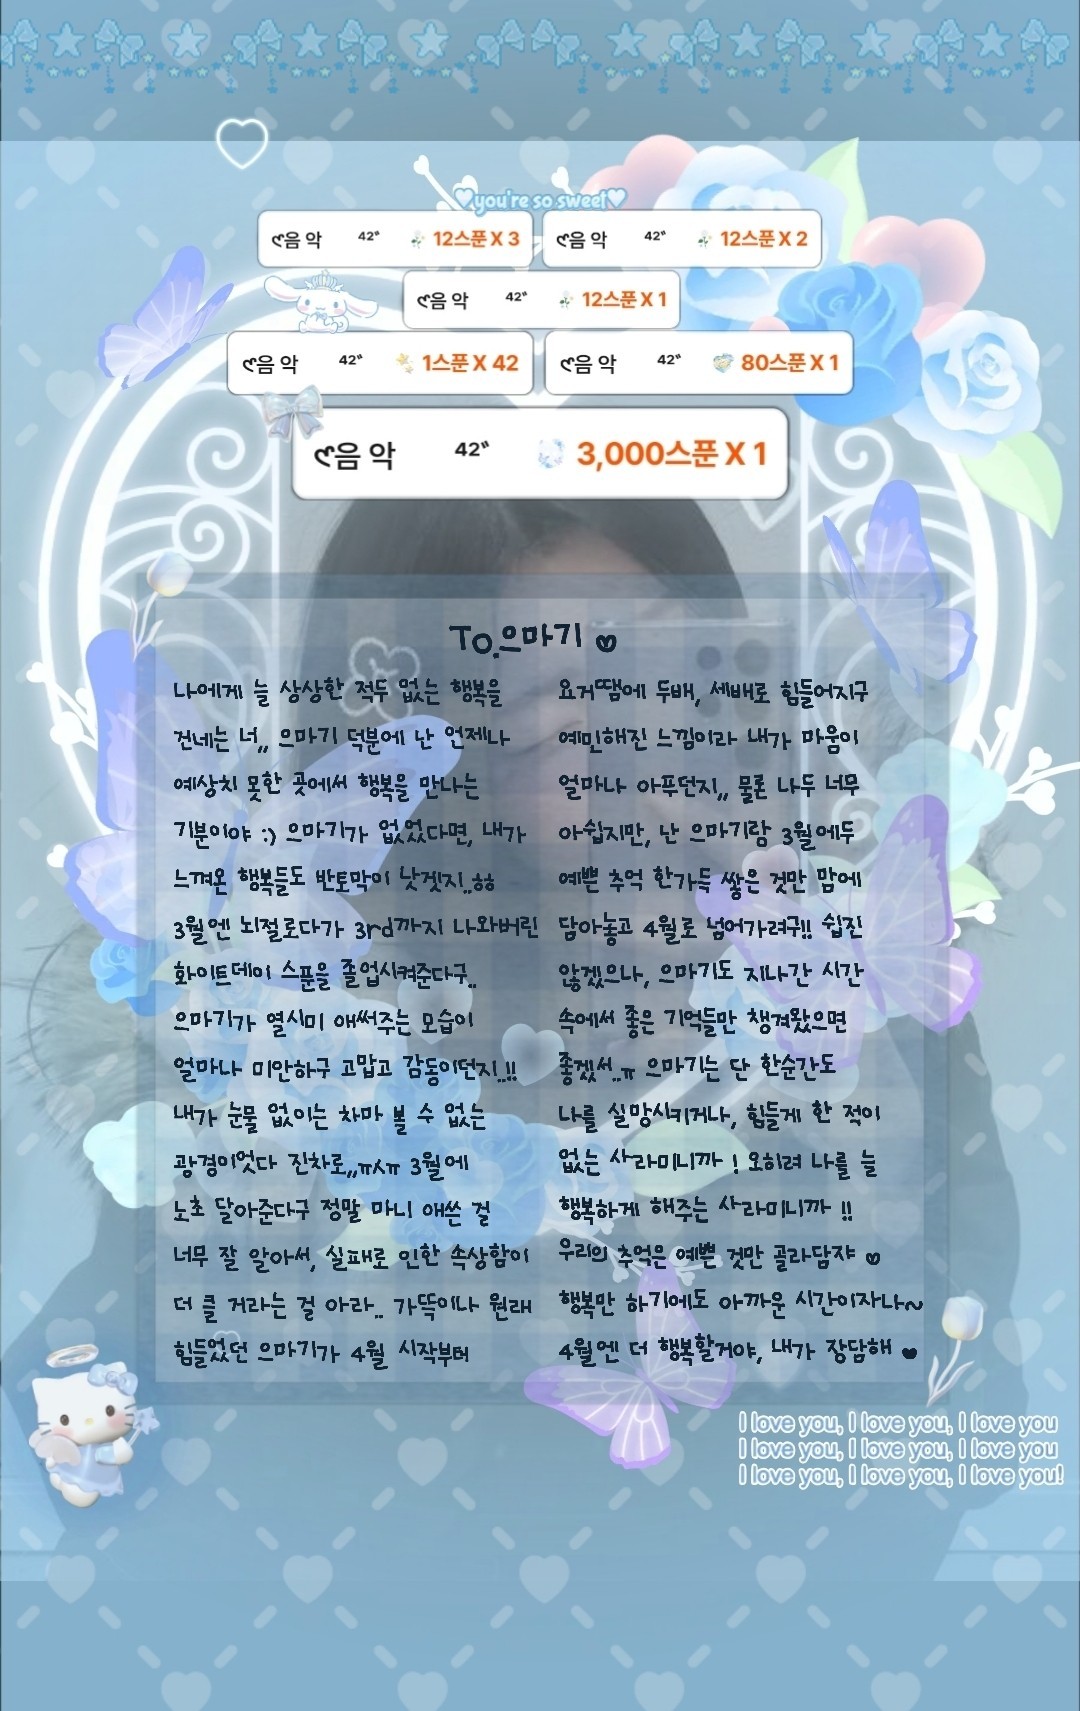 you're so sweet
음악 42" 12스푼 X 3
음악 42" 12스푼 X 2
음악 42" 12스푼 X 1
음악 42" 1스푼 X 42
음악 42" 80스푼 X 1
음악 42" 3,000스푼 X 1
To.으마기
나에게 늘 상상한 적두 없는 행복을
건네는 너,, 으마기 덕분에 난 언제나
예상치 못한 곳에서 행복을 만나는
기분이야 :) 으마기가 없었다면, 내가
느껴온 행복들도 반토막이 낫겟지..ㅎㅎ
3월엔 뇌절로다가 3rd까지 나와버린
화이트데이 스푼을 졸업시켜준다구..
으마기가 열시미 애써주는 모습이
얼마나 미안하구 고맙고 감동이던지..!!
내가 눈물 없이는 차마 볼 수 없는
광경이엇다 진차로,,ㅠㅅㅠ 3월에
노초 달아준다구 정말 마니 애쓴 걸
너무 잘 알아서, 실패로 인한 속상함이
더 클 거라는 걸 아라.. 가뜩이나 원래
힘들었던 으마기가 4월 시작부터
요거땜에 두배, 세배로 힘들어지구
예민해진 느낌이라 내가 마음이
얼마나 아푸던지,, 물론 나두 너무
아쉽지만, 난 으마기람 3월에두
예쁜 추억 한가득 쌓은 것만 맘에
담아놓고 4월로 넘어가려구!! 쉽진
않겠으나, 으마기도 지나간 시간
속에서 좋은 기억들만 챙겨왔으면
좋겠서..ㅠ 으마기는 단 한순간도
나를 실망시키거나, 힘들게 한 적이
없는 사라미니까 ! 오히려 나를 늘
행복하게 해주는 사라미니까 !!
우리의 추억은 예쁜 것만 골라담쟈
행복만 하기에도 아까운 시간이자나~
4월엔 더 행복할거야, 내가 장담해
I love you, I love you, I love you
I love you, I love you, I love you
I love you, I love you, I love you!